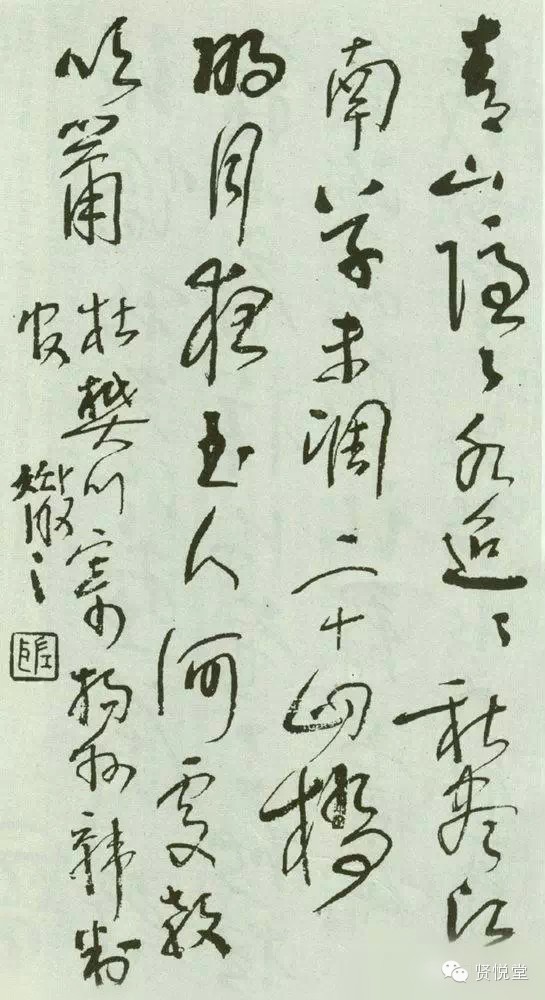 青山隱々水迢々秋盡江
南草未凋二十四橋
明月夜玉人何處教
吹簫
杜樊川寄揚州韓判
官 散之
贤悦堂